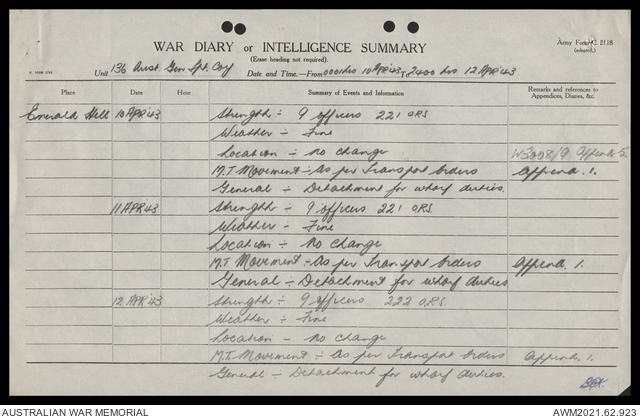 Army Form C. 2118
(adapted.)
WAR DIARY or INTELLIGENCE SUMMARY
(Erase heading not required).
Unit 136 Aust Gen Tpt. Coy Date and Time.—From 0001 hrs 10 APR 43 To 2400 hrs 12 APR 43
Place Date Hour Summary of Events and Information Remarks and references to Appendices, Diaries, &c.
Emerald Hill 10 APR 43 Strength ÷ 9 officers 221 ORS
Weather ÷ Fine
Location ÷ No change W3008/9 Appendix 5.
M.T. Movement ÷ As per Transport Orders Appendix. 1.
General ÷ Detachment for wharf duties.
11 APR 43 Strength ÷ 9 officers 221 ORS.
Weather ÷ Fine
Location ÷ No change
M.T. Movement ÷ As per Transport Orders Appendix. 1.
General ÷ Detachment for wharf duties.
12 APR 43 Strength ÷ 9 officers 222 ORS.
Weather ÷ Fine
Location ÷ No change
M.T. Movement ÷ As per Transport Orders Appendix 1.
General ÷ Detachment for wharf duties.
AUSTRALIAN WAR MEMORIAL AWM2021.62.923